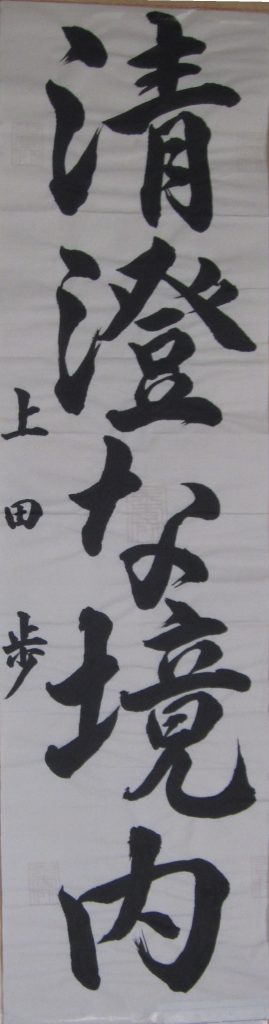 清澄な境内
上田歩